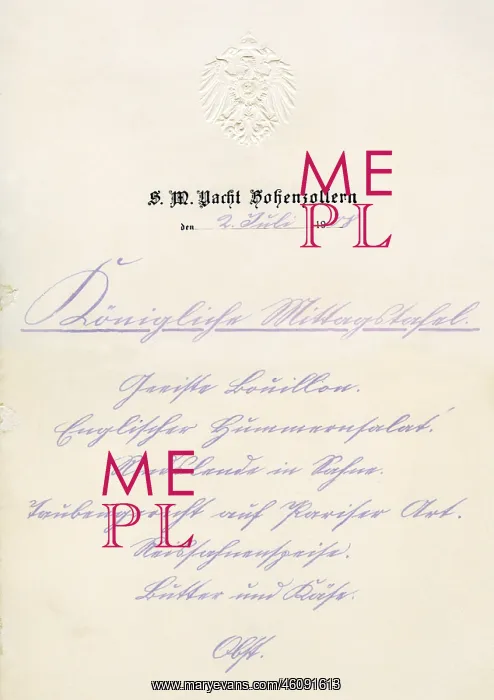 S. M. Yacht Hohenzollern
den 2. Juli 19
Königliche Mittagstafel.
Geeiste Bouillon.
Englischer Hummernsalat.
in Sahne.
Taubengericht auf Pariser Art.
Reissahnenspeise.
Butter und Käse.
Obst.
ME
PL
ME
PL
www.maryevans.com/46091613